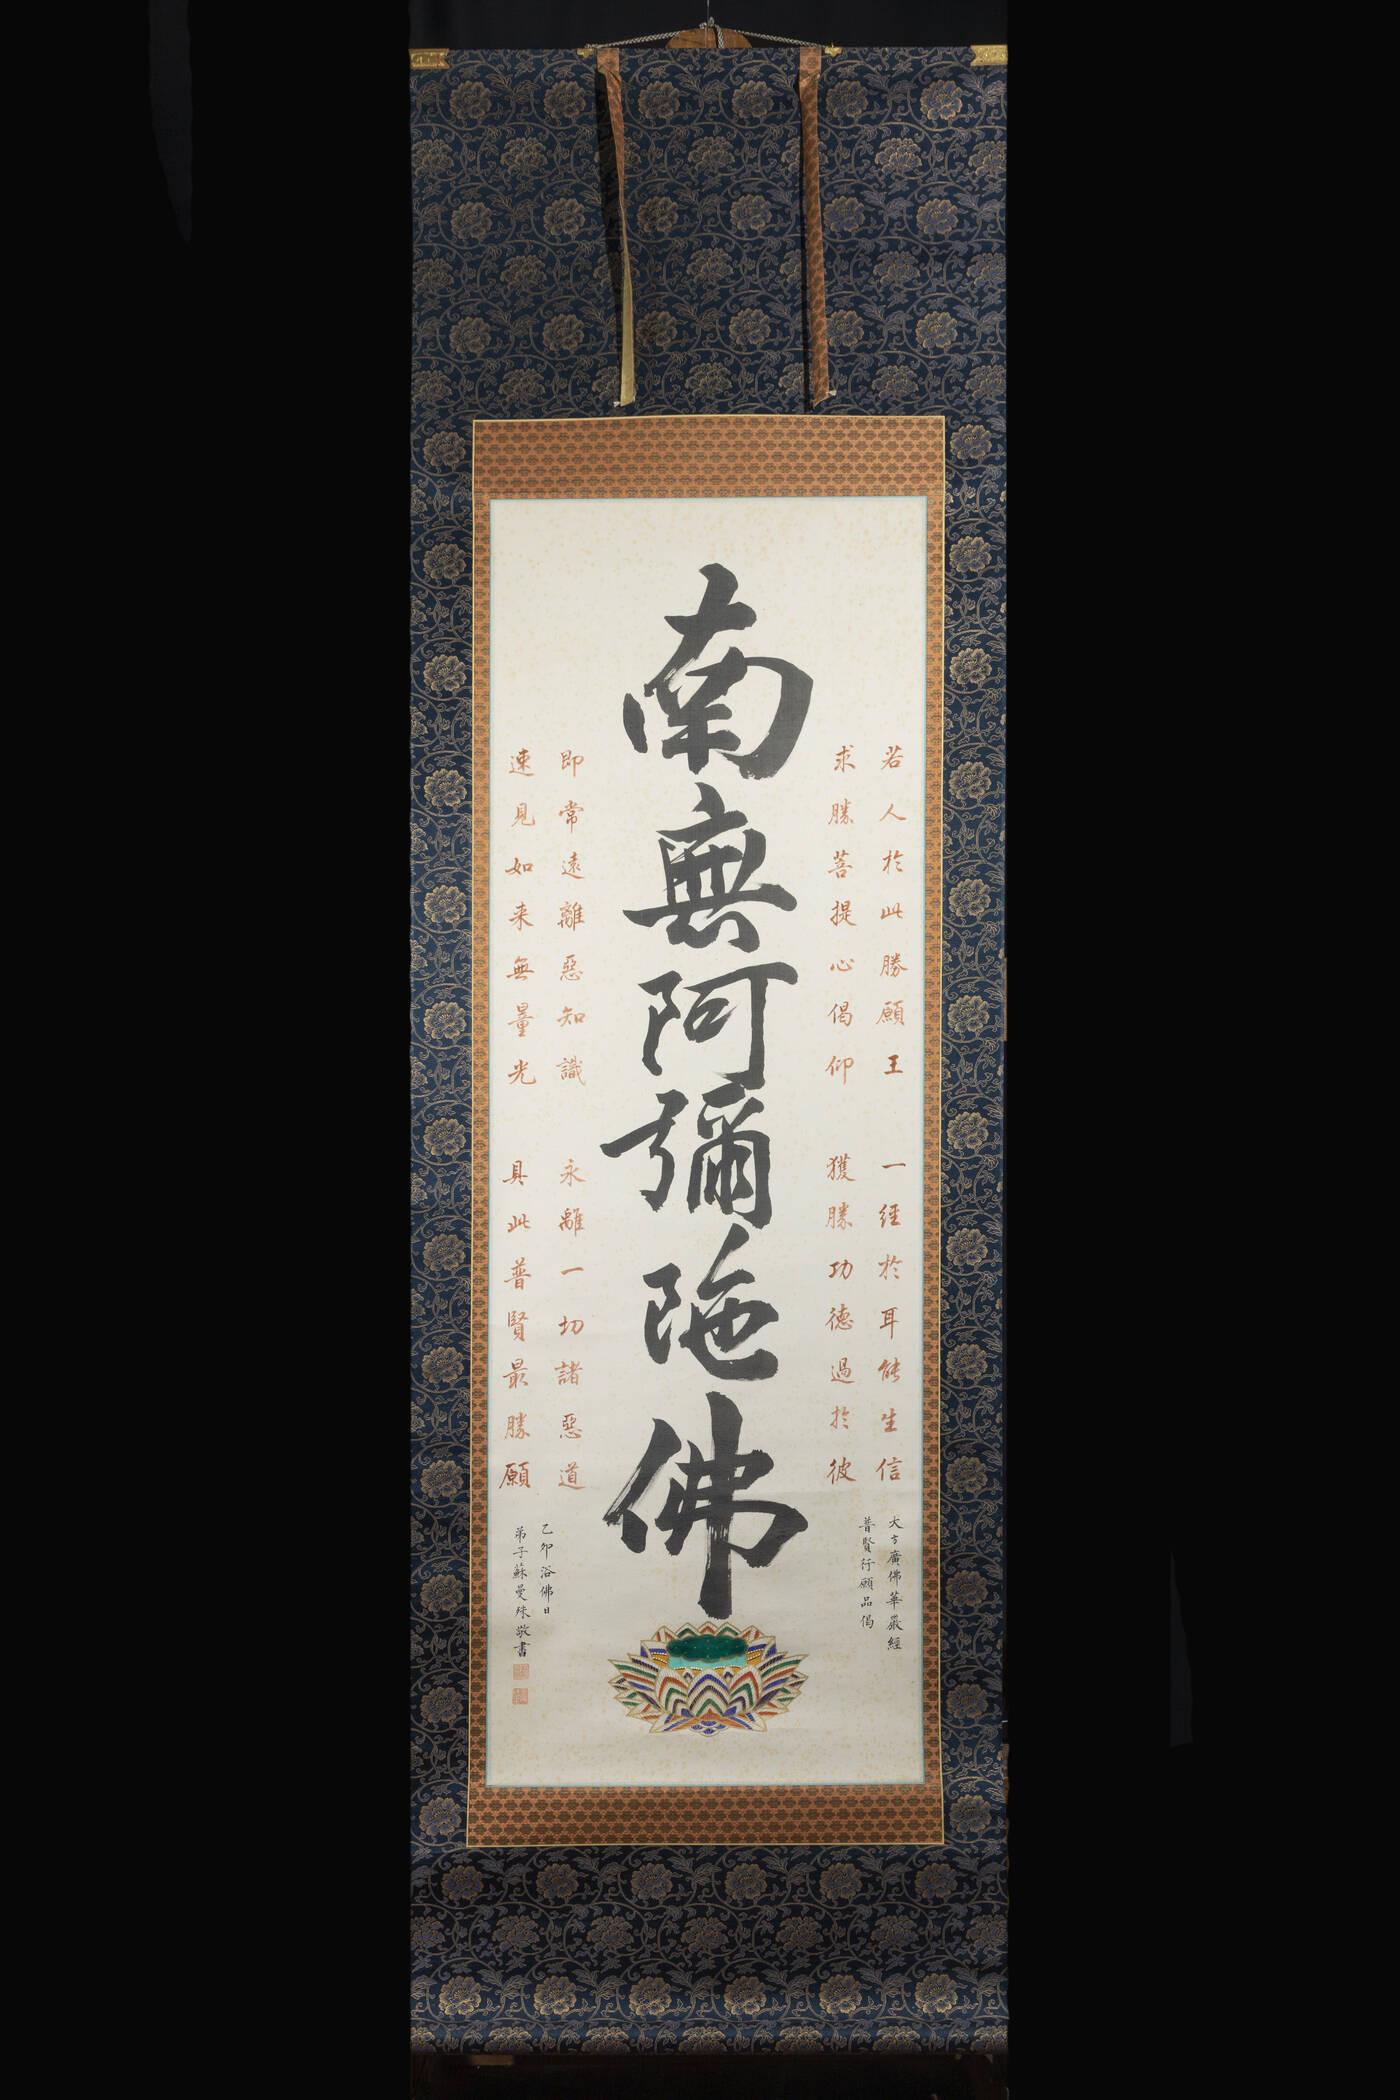 若人於此勝願王 一經於耳能生信
求勝菩提心偈仰 獲勝功德過於彼
大方廣佛華嚴經
普賢行願品偈
南無阿彌陁佛
即常遠離惡知識 永離一切諸惡道
速見如来無量光 具此普賢最勝願
乙卯浴佛日
弟子蘇曼殊敬書